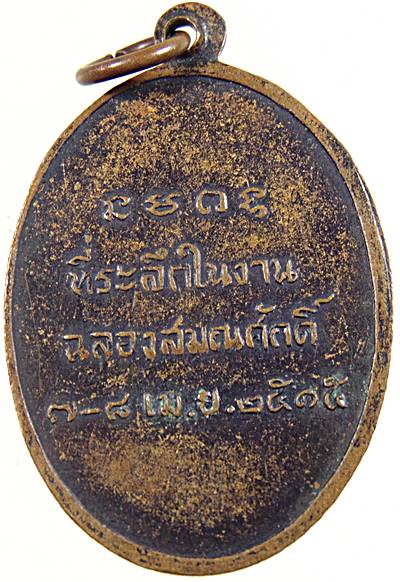 ที่ระลึกในงาน
ฉลองสมณศักดิ์
๗-๘ เม.ย.๒๕๑๕